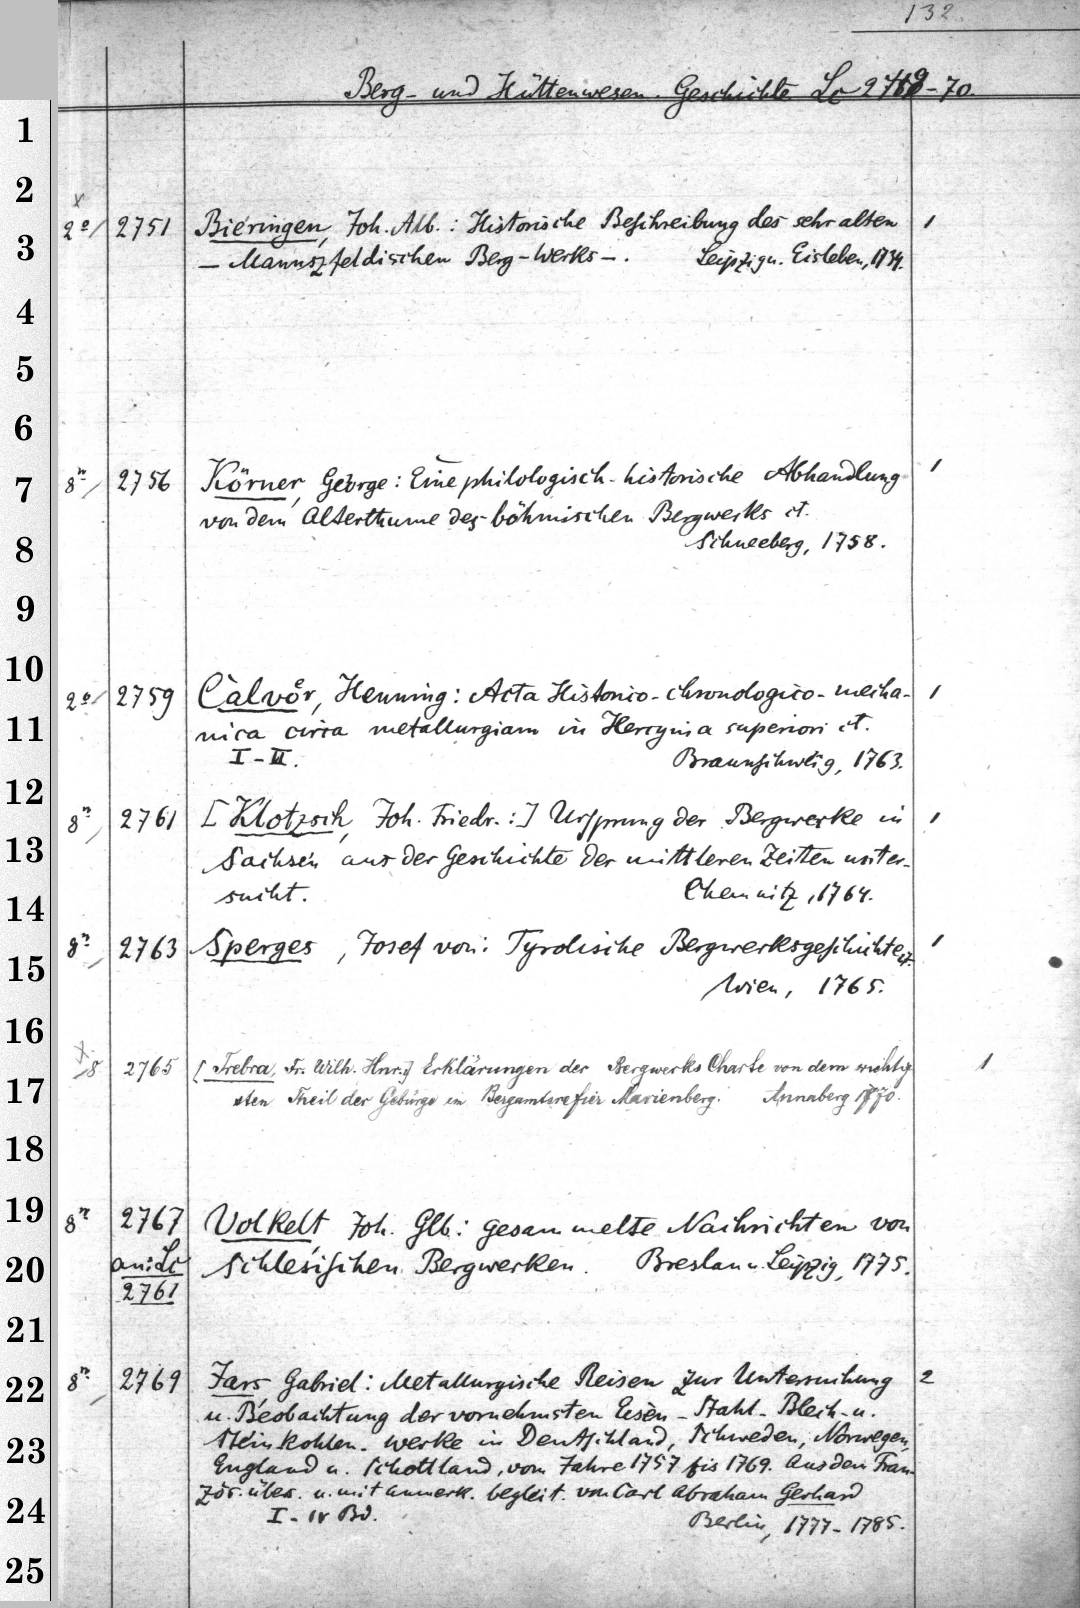 132.
Berg- und Hüttenwesen. Geschichte Lc 2769-70.
1
2
x
2º/ 2751 Bieringen, Joh. Alb.: Historische Beschreibung des sehr alten 1
3
– Mannszfeldischen Berg-Werks –. Leipzig u. Eisleben, 1734.
4
5
6
7
8º/ 2756 Körner, George: Eine philologisch-historische Abhandlung 1
von dem Alterthume des böhmischen Bergwerks et.
8
Schneeberg, 1758.
9
10
2º/ 2759 Calvör, Henning: Acta Historico-chronologico-mecha- 1
11
nica circa metallurgiam in Hercynia superiori et.
I-II. Braunschweig, 1763.
12
8º/ 2761 [Klotzsch, Joh. Friedr.:] Ursprung der Bergwerke in 1
13
Sachsen aus der Geschichte der mittleren Zeiten unter-
14
sucht. Chemnitz, 1764.
8º/ 2763 Sperges, Josef von: Tyrolische Bergwerksgeschichte et. 1
15
Wien, 1765.
16
x
8 2765 [Trebra, Fr. Wilh. Hnr.] Erklärungen der Bergwerks Charte von dem wichtig 1
17
sten Theil der Gebürge im Bergamtsrefier Marienberg. Annaberg 1770.
18
19
8º 2767 Volkelt, Joh. Glb.: gesammelte Nachrichten von
20
an: Lc Schlesischen Bergwerken. Breslau u. Leipzig, 1775.
2761
21
22
8º/ 2769 Jars Gabriel: Metallurgische Reisen zur Untersuchung 2
u. Beobachtung der vornehmsten Eisen-Stahl-Blech-u.
23
Steinkohlen-Werke in Deutschland, Schweden, Norwegen,
England u. Schottland, vom Jahre 1757 bis 1769. Aus den Fran-
zös. übers. u. mit Anmerk. begleit. von Carl Abraham Gerhard
24
I-IV Bd. Berlin, 1777-1785.
25